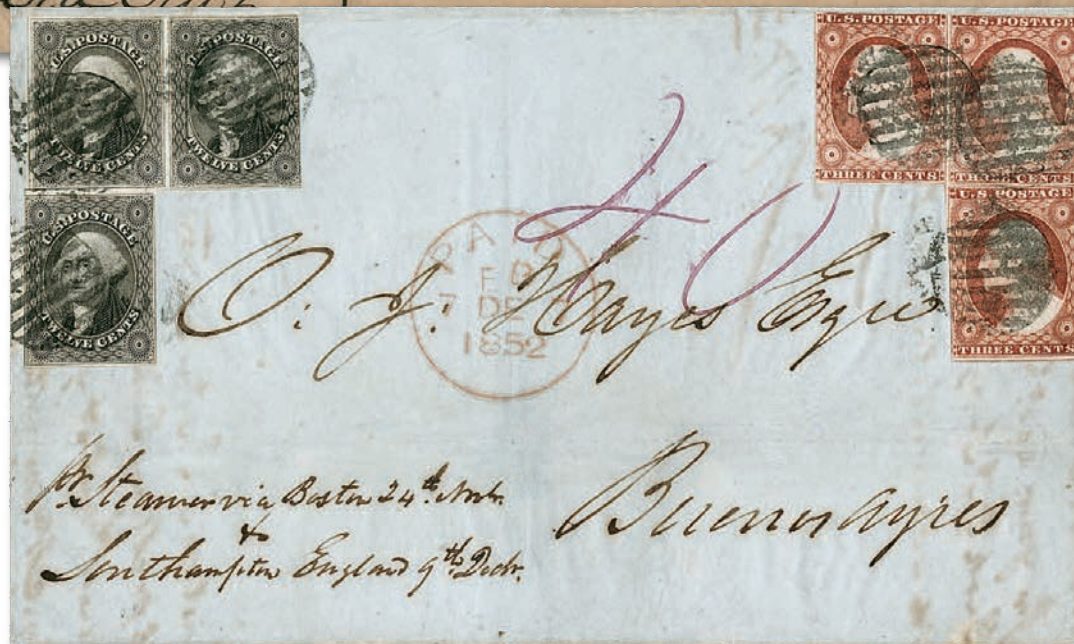 U.S.POSTAGE
TWELVE CENTS
U.S.POSTAGE
TWELVE CENTS
U.S.POSTAGE
THREE CENTS
U.S.POSTAGE
THREE CENTS
U.S.POSTAGE
TWELVE CENTS
U.S.POSTAGE
THREE CENTS
40
PAID
7 DE
1852
O. J. Hayes Esqre
pr. Steamer via Boston 24th Novbr.
&
Southampton England 9th Decbr.
Buenos Ayres